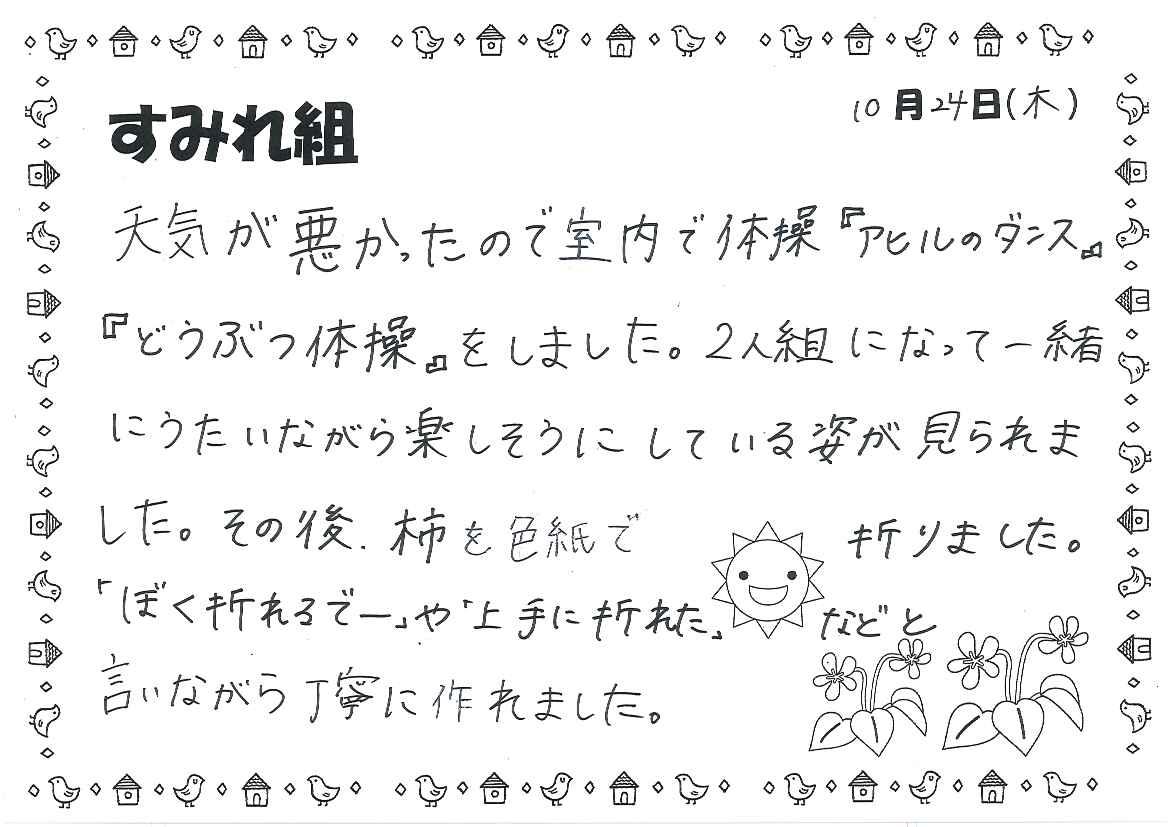 すみれ組
10月24日(木)
天気が悪かったので室内で体操『アヒルのダンス』
『どうぶつ体操』をしました。2人組になって一緒
にうたいながら楽しそうにしている姿が見られま
した。その後、柿を色紙で折りました。
「ぼく折れるでー」や「上手に折れた」などと
言いながら丁寧に作れました。